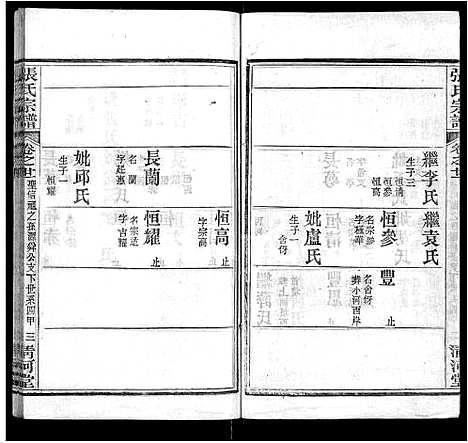 張氏宗譜
卷之廿
繼李氏
生子三
恒清
恒高
恒參
繼袁氏
恒參
名宗參
字極華
妣盧氏
生子一
含伢
豐
止
名含伢
葬小河西岸
清河堂
恒高
止
長蘭
名蘭
字起蕙
妣邱氏
生子一
恒耀
恒耀
止
名宗遠
字吉耀
張氏宗譜
卷之廿
聖信冠之孫源舜公支下世系四甲
三
清河堂